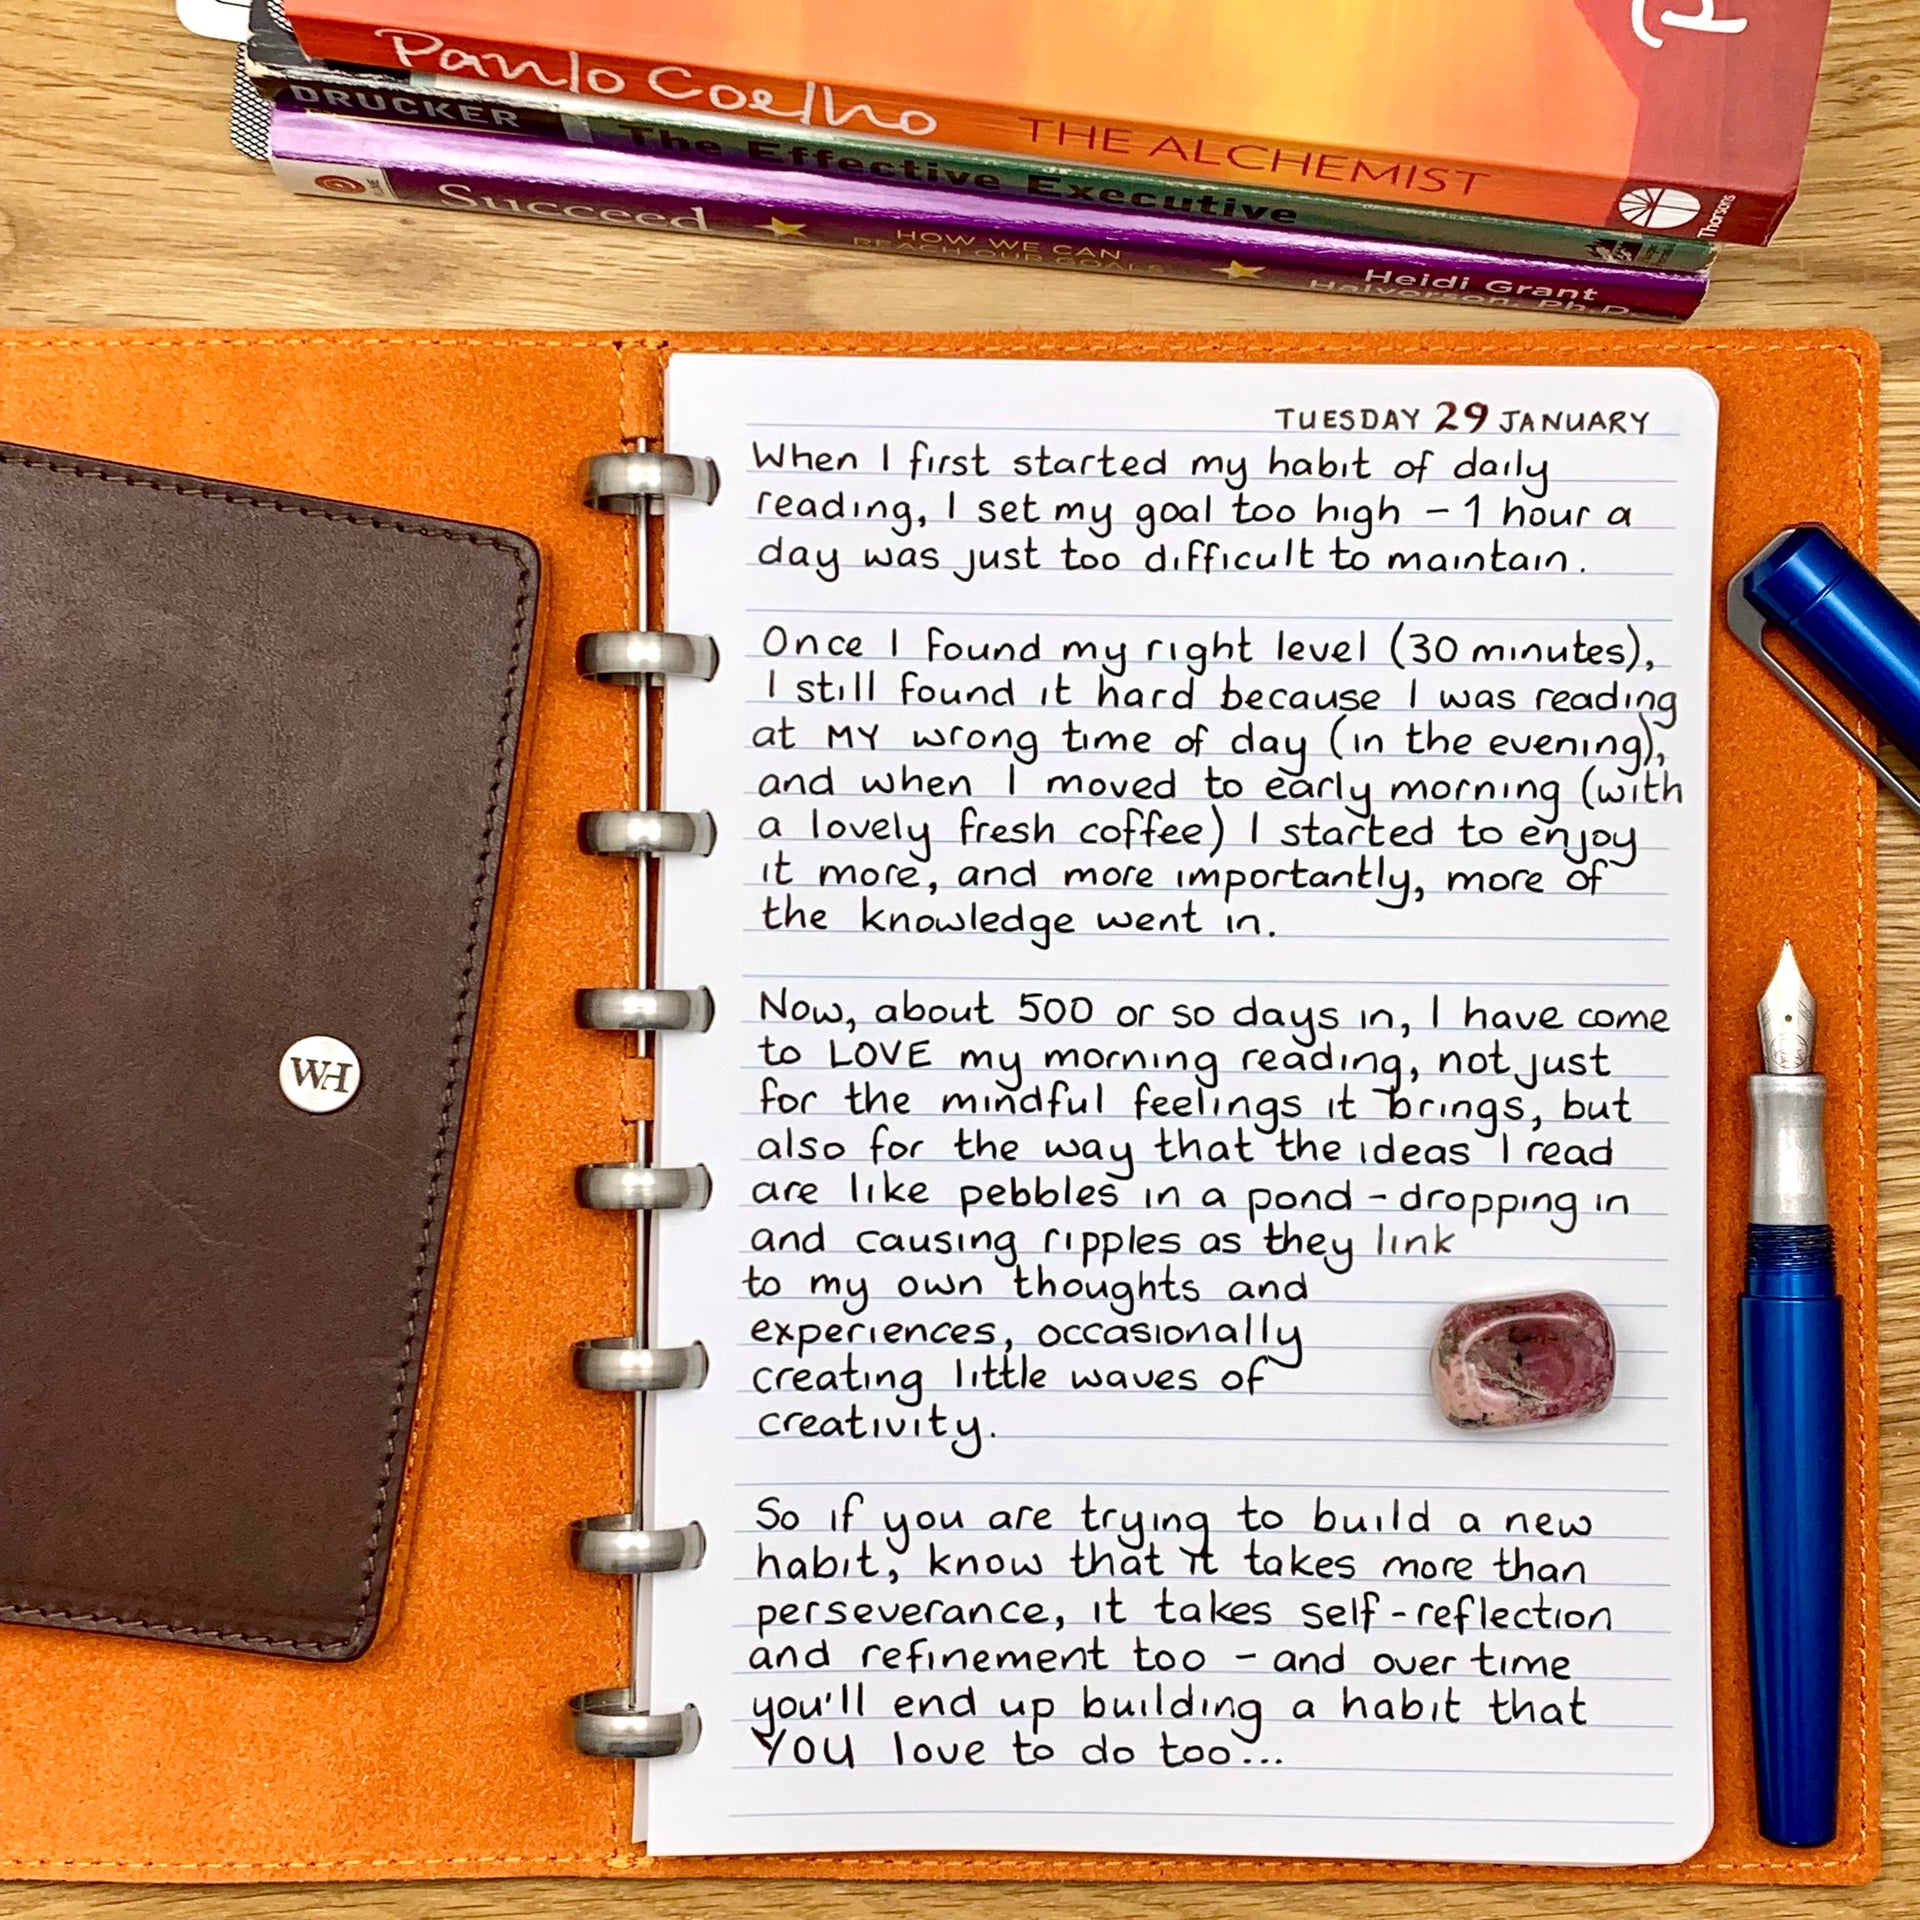 Paulo Coelho THE ALCHEMIST
Thorsons
DRUCKER The Effective Executive
Succeed HOW WE CAN
REACH OUR GOALS
Heidi Grant
Halvorson, Ph.D.
TUESDAY 29 JANUARY
When I first started my habit of daily
reading, I set my goal too high - 1 hour a
day was just too difficult to maintain.
Once I found my right level (30 minutes),
I still found it hard because I was reading
at MY wrong time of day (in the evening),
and when I moved to early morning (with
a lovely fresh coffee) I started to enjoy
it more, and more importantly, more of
the knowledge went in.
Now, about 500 or so days in, I have come
to LOVE my morning reading, not just
for the mindful feelings it brings, but
also for the way that the ideas I read
are like pebbles in a pond - dropping in
and causing ripples as they link
to my own thoughts and
experiences, occasionally
creating little waves of
creativity.
So if you are trying to build a new
habit, know that it takes more than
perseverance, it takes self-reflection
and refinement too - and over time
you'll end up building a habit that
YOU love to do too...
WH